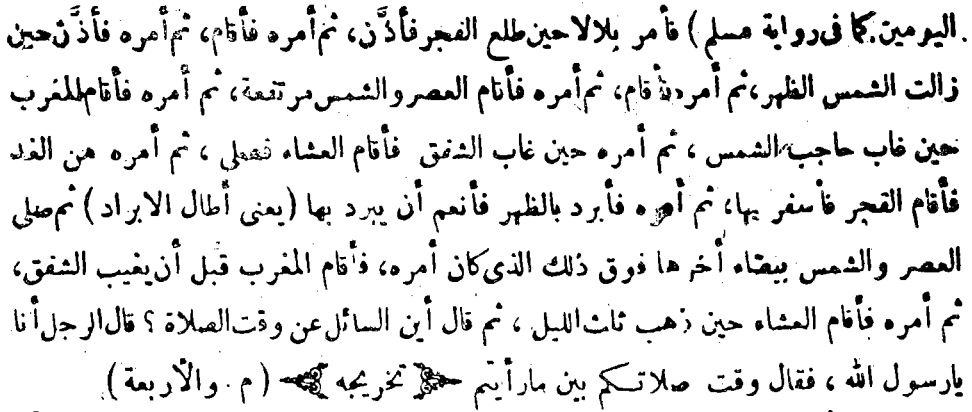 اليومين كما فى رواية مسلم) فأمر بلالا حين طلع الفجر فأذَّن، ثم أمره فأقام، ثم أمره فأذَّن حين
زالت الشمس الظهر، ثم أمره فأقام، ثم أمره فأقام العصر والشمس مرتفعة، ثم أمره فأقام المغرب
حين غاب حاجب الشمس، ثم أمره حين غاب الشفق فأقام العشاء فصلى، ثم أمره من الغد
فأقام الفجر فأسفر بها، ثم أمره فأبرد بالظهر فأنعم أن يبرد بها (يعنى أطال الابراد) ثم صلى
العصر والشمس بيضاء أخرها فوق ذلك الذى كان أمره، فأقام المغرب قبل أن يغيب الشفق،
ثم أمره فأقام العشاء حين ذهب ثلث الليل، ثم قال أين السائل عن وقت الصلاة؟ قال الرجل أنا
يارسول الله، فقال وقت صلاتكم بين مارأيتم ﴿تخريجه﴾ (م. والأربعة)